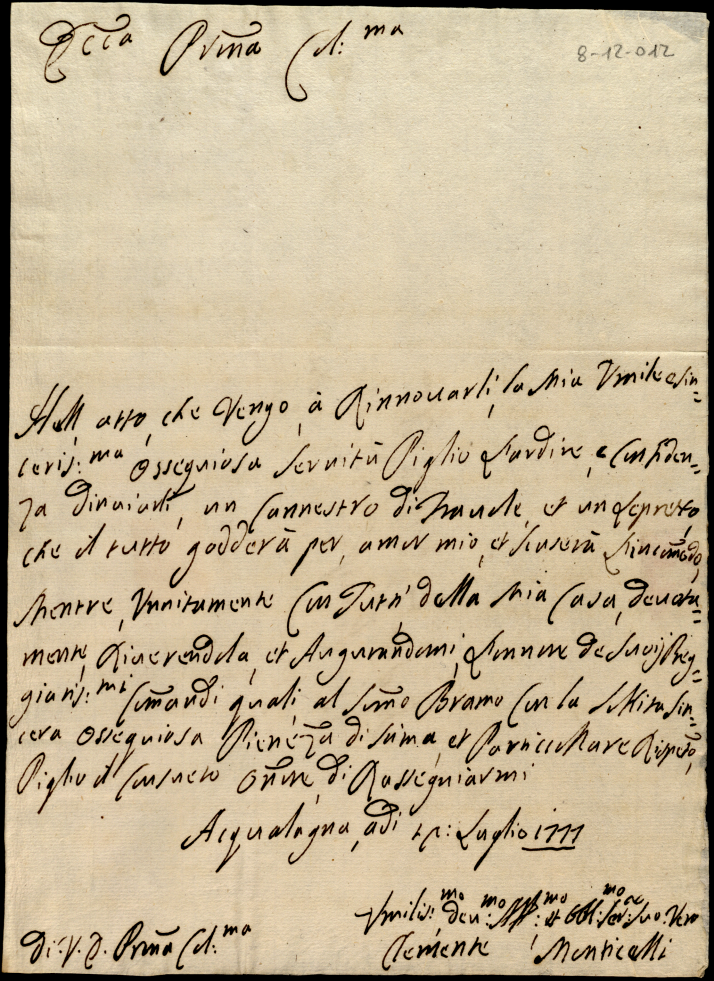 Ecc.a Prona Col:ma
8-12-012
Nell atto, che Vengo, à Rinnovarli, la Mia Umile e sin=
ceris:ma Ossequiosa Servitù Piglio L'ardire, e Confiden=
za d'inviarli, un Cannestro di Fravole, et un Lepretto
che il tutto godderà per, amor mio, et scuserà L'incomodo,
Mentre, Unitamente Con Tutti della Mia Casa, devota=
mente, Riverendola, et Augurandomi, L'onore de Suoij Reg=
giatis:mi Comandi quali al Somo Bramo Con la Solita Sin=
cera Ossequiosa Pienezza di stima, et Particollare Rispetto,
Piglio il Consueto Onore, di Rassegniarmi
Acqualagna, adi Luglio 1777
Umilis:mo dev:mo et Obl:mo Ser:re Suo Vero
Di: V. E. Prona Col:ma
Clemente Monticelli